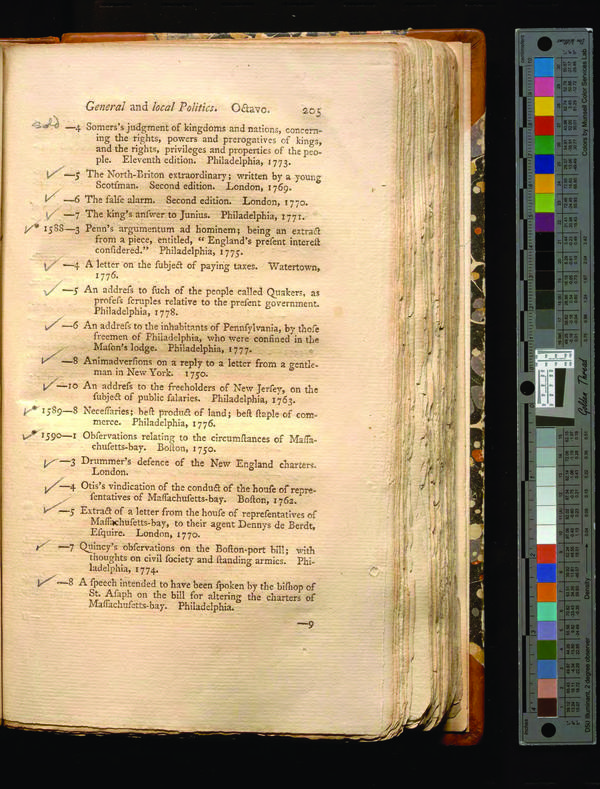 General and local Politics. Octavo. 205
sold —4 Somers's judgment of kingdoms and nations, concern-
ing the rights, powers and prerogatives of kings,
and the rights, privileges and properties of the peo-
ple. Eleventh edition. Philadelphia, 1773.
—5 The North-Briton extraordinary; written by a young
Scotſman. Second edition. London, 1769.
—6 The falſe alarm. Second edition. London, 1770.
—7 The king's anſwer to Junius. Philadelphia, 1771.
1588—3 Penn's argumentum ad hominem; being an extract
from a piece, entitled, “ England's preſent intereſt
conſidered.” Philadelphia, 1775.
—4 A letter on the ſubject of paying taxes. Watertown,
1776.
—5 An addreſs to ſuch of the people called Quakers, as
profeſs ſcruples relative to the preſent government.
Philadelphia, 1778.
—6 An addreſs to the inhabitants of Pennſylvania, by thoſe
freemen of Philadelphia, who were confined in the
Maſon's lodge. Philadelphia, 1777.
—8 Animadverſions on a reply to a letter from a gentle-
man in New York. 1750.
—10 An addreſs to the freeholders of New Jerſey, on the
ſubject of public ſalaries. Philadelphia, 1763.
1589—8 Neceſſaries; beſt product of land; beſt ſtaple of com-
merce. Philadelphia, 1776.
1590—1 Obſervations relating to the circumſtances of Maſſa-
chuſetts-bay. Boſton, 1750.
—3 Drummer's defence of the New England charters.
London.
—4 Otis's vindication of the conduct of the houſe of repre-
ſentatives of Maſſachuſetts-bay. Boſton, 1762.
—5 Extract of a letter from the houſe of repreſentatives of
Maſſachuſetts-bay, to their agent Dennys de Berdt,
Eſquire. London, 1770.
—7 Quincy's obſervations on the Boſton-port bill; with
thoughts on civil ſociety and ſtanding armies. Phi-
ladelphia, 1774.
—8 A ſpeech intended to have been ſpoken by the biſhop of
St. Aſaph on the bill for altering the charters of
Maſſachuſetts-bay. Philadelphia.
—9
Colors by Munsell Color Services Lab
Golden Thread
Density
D50 Illuminant, 2 degree observer